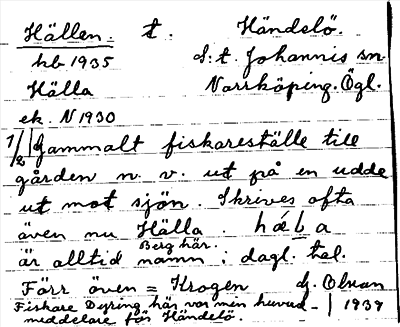 Hällen. t. Händelö.
hb 1935 S:t. Johannis sn
Hälla Norrköping. Ögl.
ek. N 1930
1/2 Gammalt fiskareställe till
gården n. v. ut på en udde
ut mot sjön. Skrives ofta
även nu Hälla.
Berg här.
är alltid namn i dagl. tal.
Förr även = Krogen G. Olson
Fiskare Dyring här var min huvud- 1939
meddelare för Händelö.